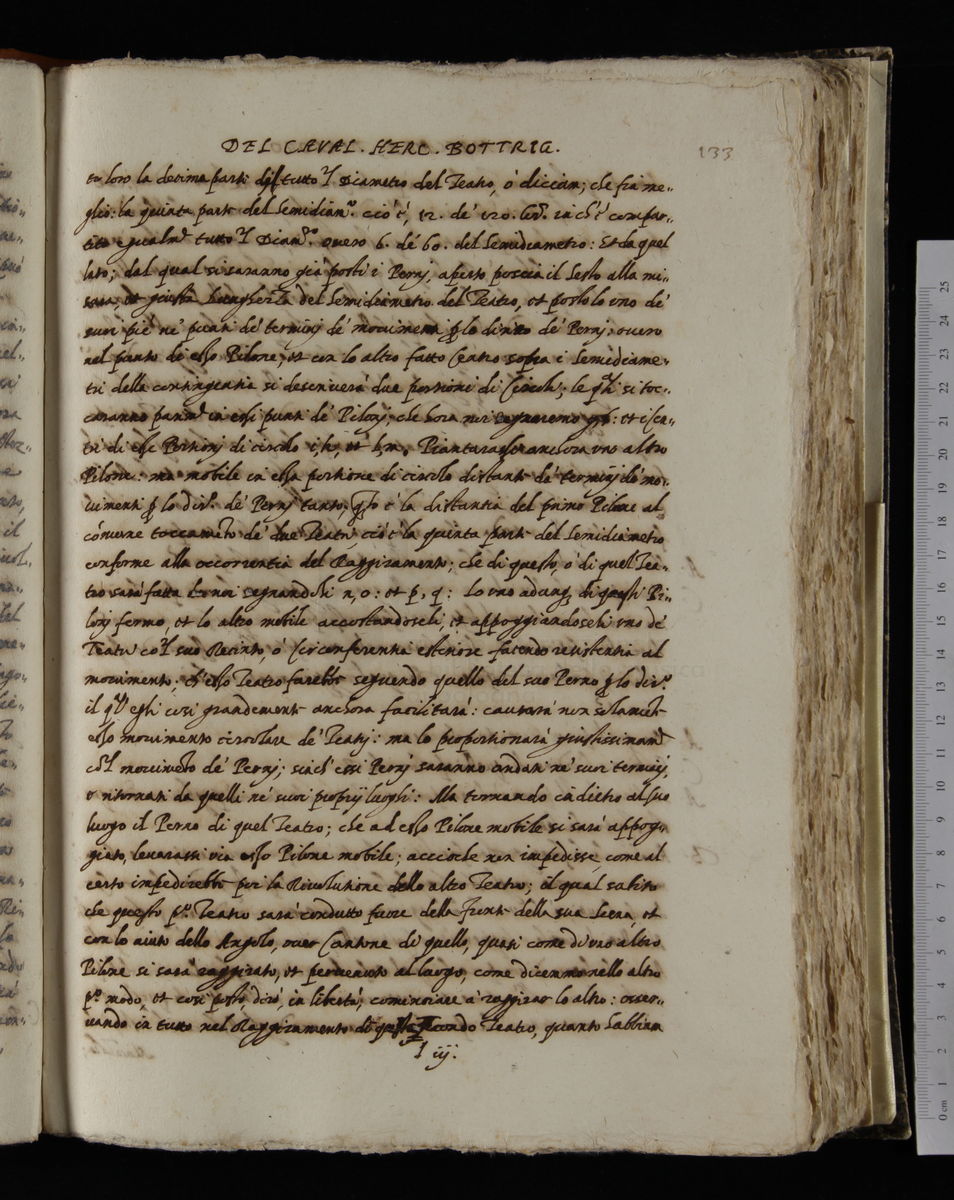 DEL CAVAL. HERC. BOTTRIG.
133
to loro la decima parti del tutto 'l Diametro del Teatro, ò diciam; che fia me-
glio: la quinta parte del Semidiam.º cio è, 12. de' 120. in ch'è compar-
tito egualm.te tutto 'l Diam.º overo 6. dé 60. del Semidiametro: Et da quel
lato; dal qual si saranno già posti i Pernj, aperto poscia il Sesto alla mi-
sura, et giusta lungheza del Semidiametro del Teatro, et postolo uno dé
suoi pié né punti dé terminj dé movimenti lo dritto dé Pernj: overo
nel punto de esso Pilone; et con lo altro fatto Centro sopra i Semidiame-
tri della contingentia si descriverà due portioni di Circoli; le si toc-
caranno in essi punti dé Pilonj; che hora noi segnaremo et i Cen-
tri di esse Portionj di circolo i, k, et l, m, Piantarassi anchora uno altro
Pilone: ma mobile in essa portione di circolo distante dé terminj dé mo-
vimenti lo dé Pernj tanto, è la distantia del primo Pilone al
cómune toccaméto dé due Teatri cio è la quinta parte del Semidiametro
conforme alla occorrentia del Raggiramento; che di questo, ò di quel Tea-
tro sarà fatta et noi segnandoli n, o: et p, q: Lo uno adunq di questi Pi-
lonj fermo, et lo altro mobile accostandoseli, et appoggiandoseli uno dé
Teatri co 'l suo Recinto, ò Circonferentia esteriore facendo resistentia al
movimento; ch'esso Teatro farebbe seguendo quello del suo Perno lo
il egli cosi grandemente anchora facilitarà: causarà non solamente
esso movimento circolare dé Teatrj: ma lo proportionarà giustissimam.te
movimeto dé Pernj; siach' essi Pernj saranno andati né suoi terminj,
o ritornati da quelli né suoi proprij luoghi: Ma tornando in dietro al suo
luogo il Perno di quel Teatro; che ad esso Pilone mobile si sarà appog-
giato, levarassi via esso Pilone mobile; accioche non impedisse, come al
certo impedirebbe poi la Rivolutione dello altro Teatro; il qual subito
che questo p.º Teatro sarà condutto fuore della fronte della sua Scena, et
con lo aiuto dello Angolo, over Cantone di quello, quasi come di uno altro
Pilone si sarà raggirato, et pervenuto al luogo, come dicemmo nello altro
p.º modo, et cosi posto, dirò, in libertà; cominciare à raggirar lo altro: osser-
vando in tutto nel Raggiramento di questo secondo Teatro, quanto habbiam
I iij.